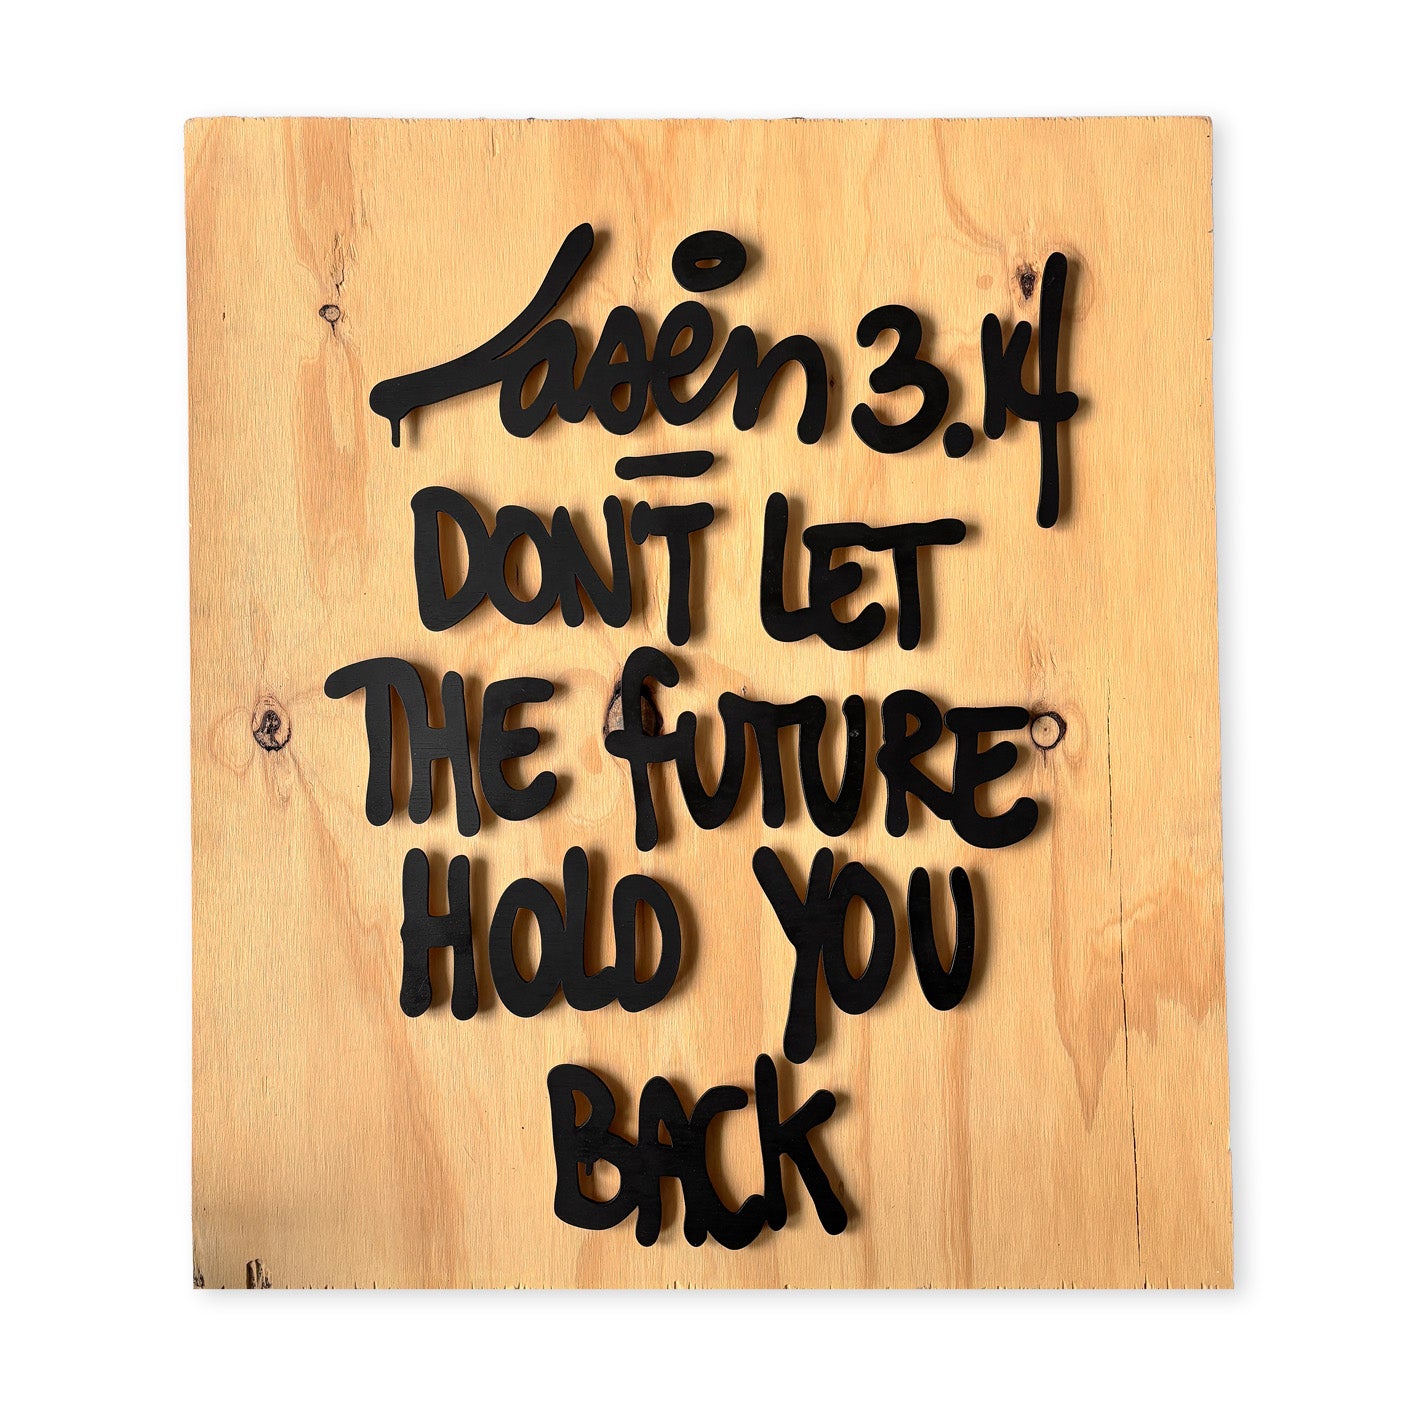 Laser 3.14
-
DON'T LET
THE fUTURE
HOLD YOU
BACK